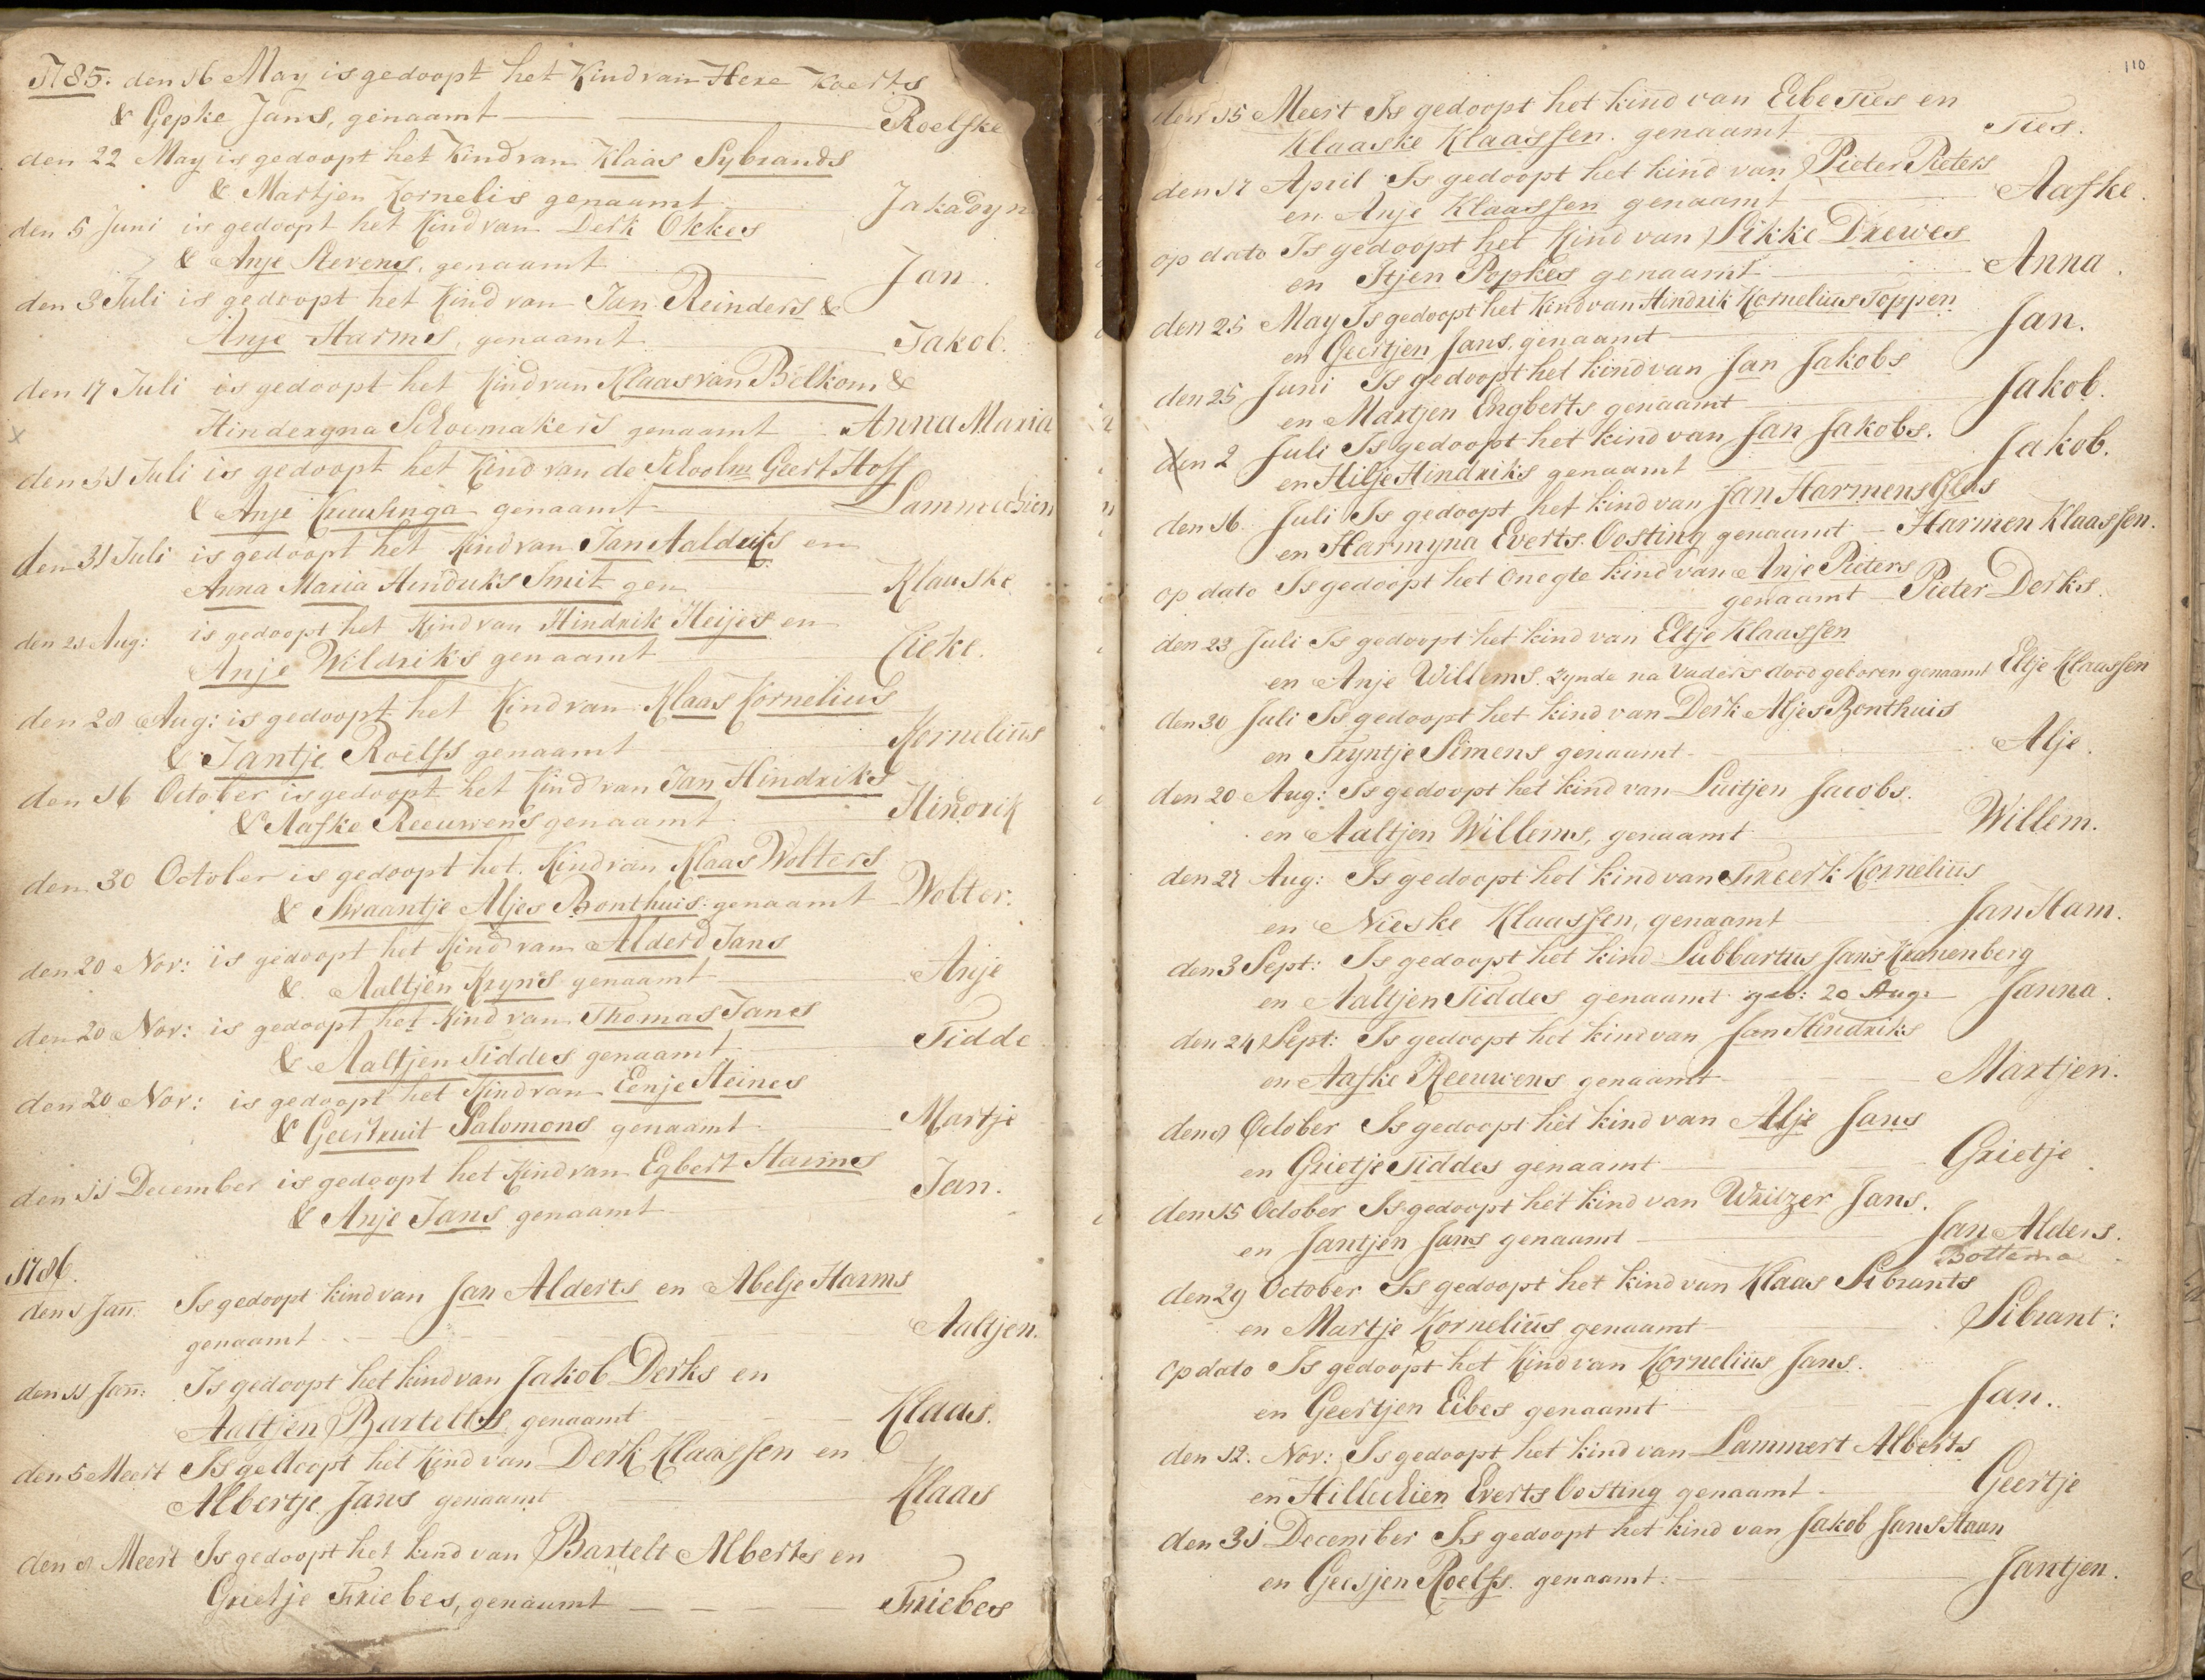 1785. den 16 May is gedoopt het Kind van Here Koerts
& Gepke Jans, genaamt Roelfke
den 22 May is gedoopt het Kind van Klaas Sybrands
& Martjen Kornelis genaamt Jakadyn
den 5 Juni is gedoopt het Kind van Derk Okkes
& Anje Stevens, genaamt Jan.
den 3 Juli is gedoopt het Kind van Jan Reinders &
Anje Harms, genaamt Jakob.
den 17 Juli is gedoopt het Kind van Klaas van Belkom &
Hinderyna Schoemakers genaamt Anna Maria
den 31 Juli is gedoopt het Kind van de Schoolm Geert Hoff
& Anje Kruisinga genaamt Lammechien
den 31 Juli is gedoopt het Kind van Jan Aalderiks en
Anna Maria Hindriks Smit gen Klaaske
den 21 Aug: is gedoopt het Kind van Hindrik Heijes en
Anje Wildriks genaamt Eieke.
den 28 Aug: is gedoopt het Kind van Klaas Kornelius
& Jantje Roelfs genaamt Kornelius
den 16 October is gedoopt het Kind van Jan Hindriks
& Aafke Reeuwens genaamt Hindrik
den 30 October is gedoopt het Kind van Klaas Wolters
& Swaantje Aljes Bonthuis genaamt Wolter.
den 20 Nov: is gedoopt het Kind van Alderd Jans
& Aaltjen Kryns genaamt Anje
den 20 Nov: is gedoopt het Kind van Thomas Jans
& Aaltjen Tiddes genaamt Tidde
den 20 Nov: is gedoopt het Kind van Eenje Heines
& Geertruit Salomons genaamt Martje
den 11 December is gedoopt het Kind van Egbert Harms
& Anje Jans genaamt Jan.
1786.
den 1 Jan: Is gedoopt kind van Jan Alderts en Abelje Harms
genaamt Aaltjen.
den 11 Jan: Is gedoopt het kind van Jakob Derks en
Aaltjen Bartelts genaamt Klaas.
den 5 Meert Is gedoopt het Kind van Derk Klaassen en
Albertje Jans genaamt Klaas
den 8 Meert Is gedoopt het kind van Bartelt Alberts en
Grietje Friebes, genaamt Friebes
110
den 15 Meert Is gedoopt het kind van Eibe Ties en
Klaaske Klaassen. genaamt Ties.
den 17 April Is gedoopt het kind van Pieter Pieters
en Anje Klaassen genaamt Aafke.
op dato Is gedoopt het Kind van Sikke Drewes
en Itjen Popkes genaamt Anna.
den 25 May Is gedoopt het Kind van Hindrik Kornelius Toppen
en Geertjen Jans, genaamt Jan.
den 25 Juni Is gedoopt het kind van Jan Jakobs
en Martjen Engberts genaamt Jakob.
den 2 Juli Is gedoopt het kind van Jan Jakobs.
en Hilje Hindriks genaamt Jakob.
den 16 Juli Is gedoopt het kind van Jan Harmens Glas
en Harmyna Everts Oosting genaamt Harmen Klaassen.
op dato Is gedoopt het Onegte kind van Anje Pieters
genaamt Pieter Derks.
den 23 Juli Is gedoopt het kind van Eltje Klaassen
en Anje Willems. zynde na Vaders dood geboren genaamt Eltje Klaassen
den 30 Juli Is gedoopt het kind van Derk Aljes Bonthuis
en Tryntje Simens genaamt Alje.
den 20 Aug: Is gedoopt het kind van Luitjen Jacobs.
en Aaltjen Willems, genaamt Willem.
den 27 Aug: Is gedoopt het kind van Freerk Kornelius
en Nieske Klaassen, genaamt Jan Ham.
den 3 Sept: Is gedoopt het kind Lubbartus Jans Kranenberg
en Aaltjen Tiddes genaamt geb: 20 Aug: Janna.
den 24 Sept: Is gedoopt het kind van Jan Hindriks
en Aafke Reeuwens genaamt Martjen.
den 8 October Is gedoopt het kind van Alje Jans
en Grietje Tiddes genaamt Grietje.
den 15 October Is gedoopt het kind van Writzer Jans.
en Jantjen Jans genaamt Jan Alders.
Bottema
den 29 October Is gedoopt het kind van Klaas Sibrants
en Martje Kornelius genaamt Sibrant:
op dato Is gedoopt het Kind van Kornelius Jans.
en Geertjen Eibes genaamt Jan.
den 12. Nov: Is gedoopt het kind van Lammert Alberts
en Hillechien Everts Oosting genaamt Geertje
den 31 December Is gedoopt het kind van Jakob Jans Haan
en Geesjen Roelfs. genaamt: Jantjen.